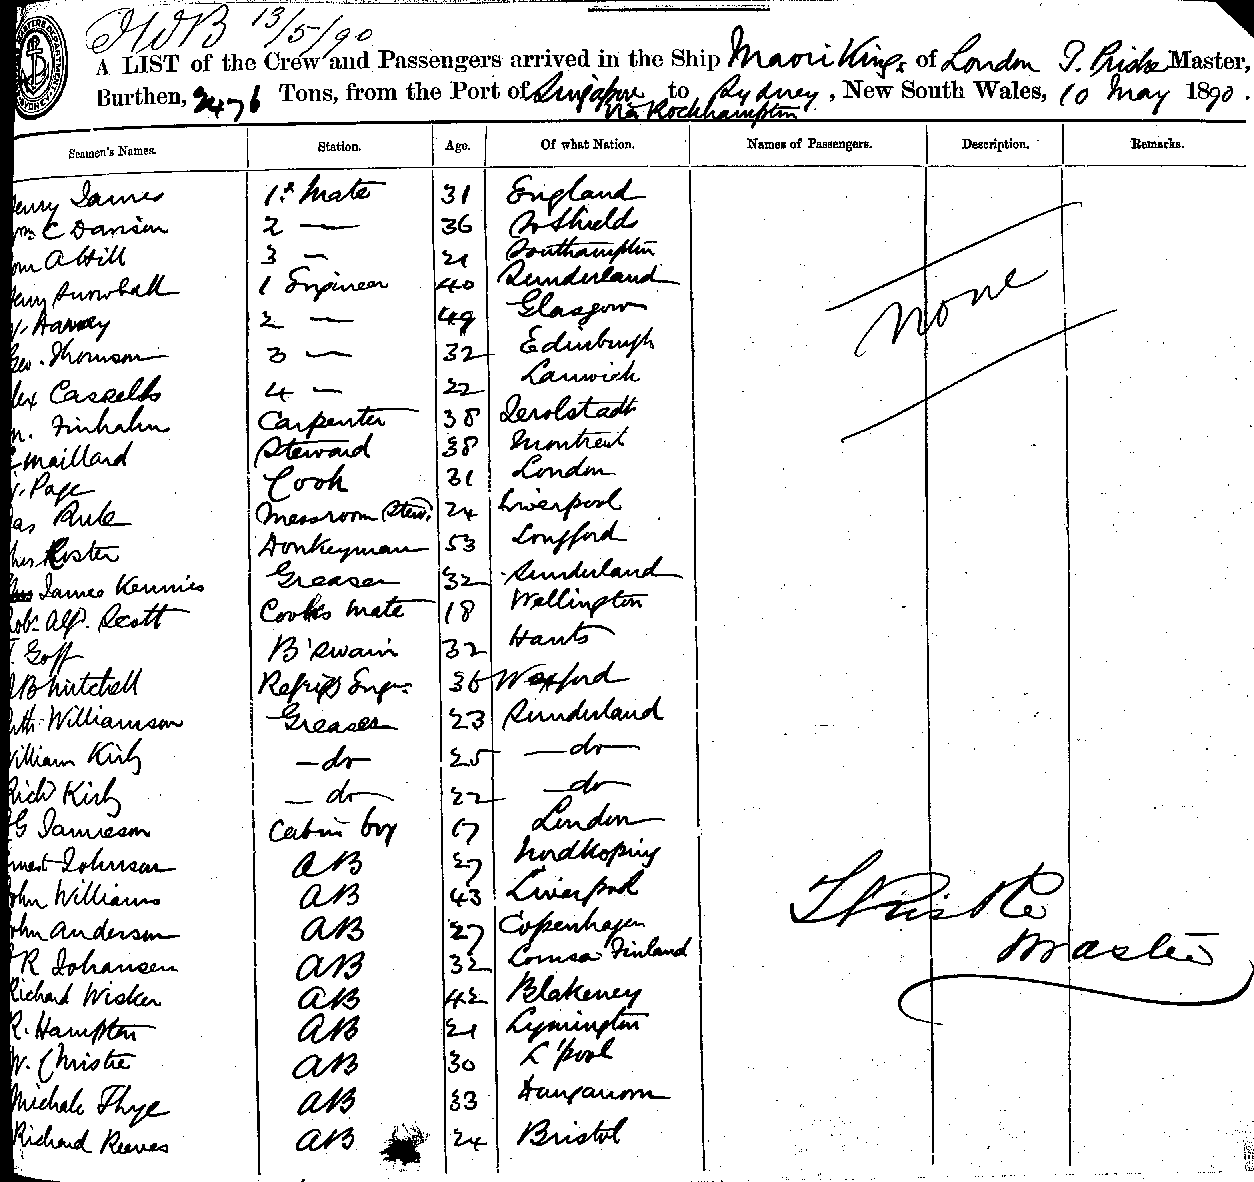 HWB 13/5/90
A LIST of the Crew and Passengers arrived in the Ship Maori King of London T. Master,
Burthen, 2476 Tons, from the Port of Singapore to Sydney, New South Wales, 10 May 1890.
via Rockhampton
Seamen's Names. Station. Age. Of what Nation. Names of Passengers. Description. Remarks.
enry James 1st Mate 31 England
C Davison 2 — 36 No Shields
A Hill 3 — 21 Southampton
Snowball 1 Engineer 40 Sunderland
Harvey 2 — 49 Glasgow
Geo. Thomson 3 — 32 Edinburgh
lex Cassells 4 — 22
Carpenter 38
Maillard Steward 38 Montreal
Page Cook 31 London
as Rule Messroom Stew. 24 Liverpool
Donkeyman 53 Longford
James Kennies Greaser 32 Sunderland
Robt Alf. Scott Cooks mate 18 Wellington
Goff B'swain 32 Hants
B Mitchell Refrig Engr 36 Wexford
Williamson Greaser 23 Sunderland
William Kirby —do— 25 —do—
Richd Kirby —do— 22 —do—
G Jamieson Cabin boy 17 London
rnest Johnson AB 27 Nordkoping
John Williams AB 43 Liverpool
John Anderson AB 27 Copenhagen
R Johansen AB 32 Finland
Richard Wisker AB 42 Blakeney
R. Hampton AB 21 Lymington
W. Christie AB 30 L'pool
Michale Thye AB 33
Richard Reeves AB 24 Bristol
None
Master